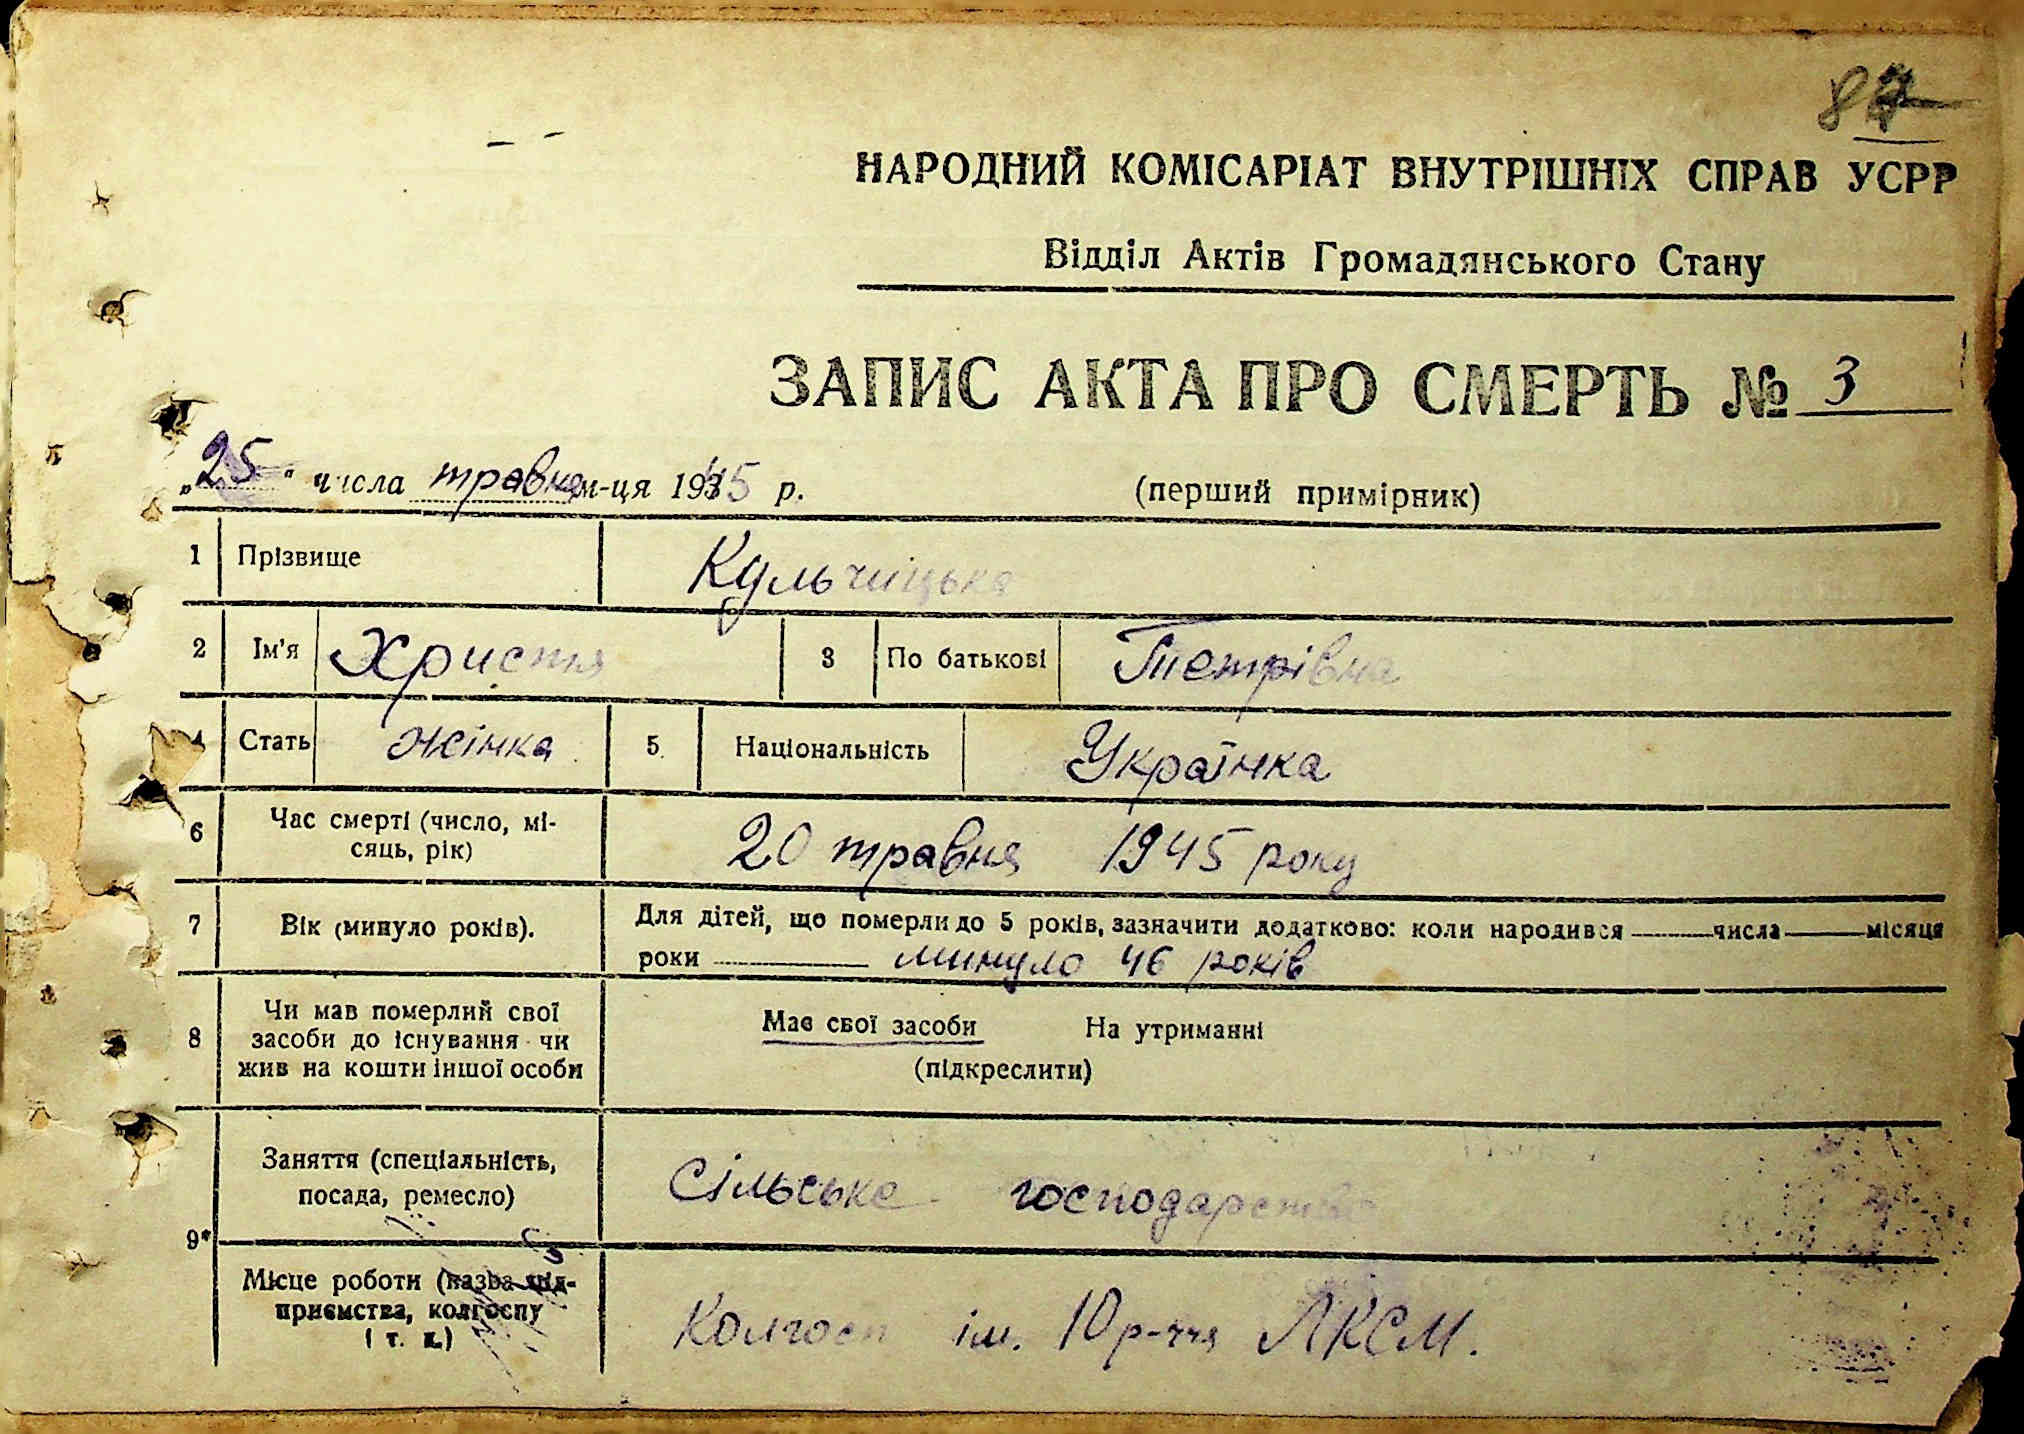 НАРОДНИЙ КОМІСАРІАТ ВНУТРІШНІХ СПРАВ УСРР
Відділ Актів Громадянського Стану
ЗАПИС АКТА ПРО СМЕРТЬ № 3
„25“ числа травня м-ця 1945 р. (перший примірник)
1 Прізвище Кульчицька
2 Ім'я Христя 3 По батькові Петрівна
4 Стать жінка 5 Національність Українка
6 Час смерті (число, мі-
сяць, рік) 20 травня 1945 року
7 Вік (минуло років). Для дітей, що померли до 5 років, зазначити додатково: коли народився числа місяця
роки минуло 46 років
8 Чи мав померлий свої
засоби до існування чи
жив на кошти іншої особи
Має свої засоби На утриманні
(підкреслити)
9* Заняття (спеціальність,
посада, ремесло) Сільське господарство
Місце роботи (назва під-
приємства, колгоспу
і т. п.) Колгосп ім. 10 р-ччя ЛКСМ.